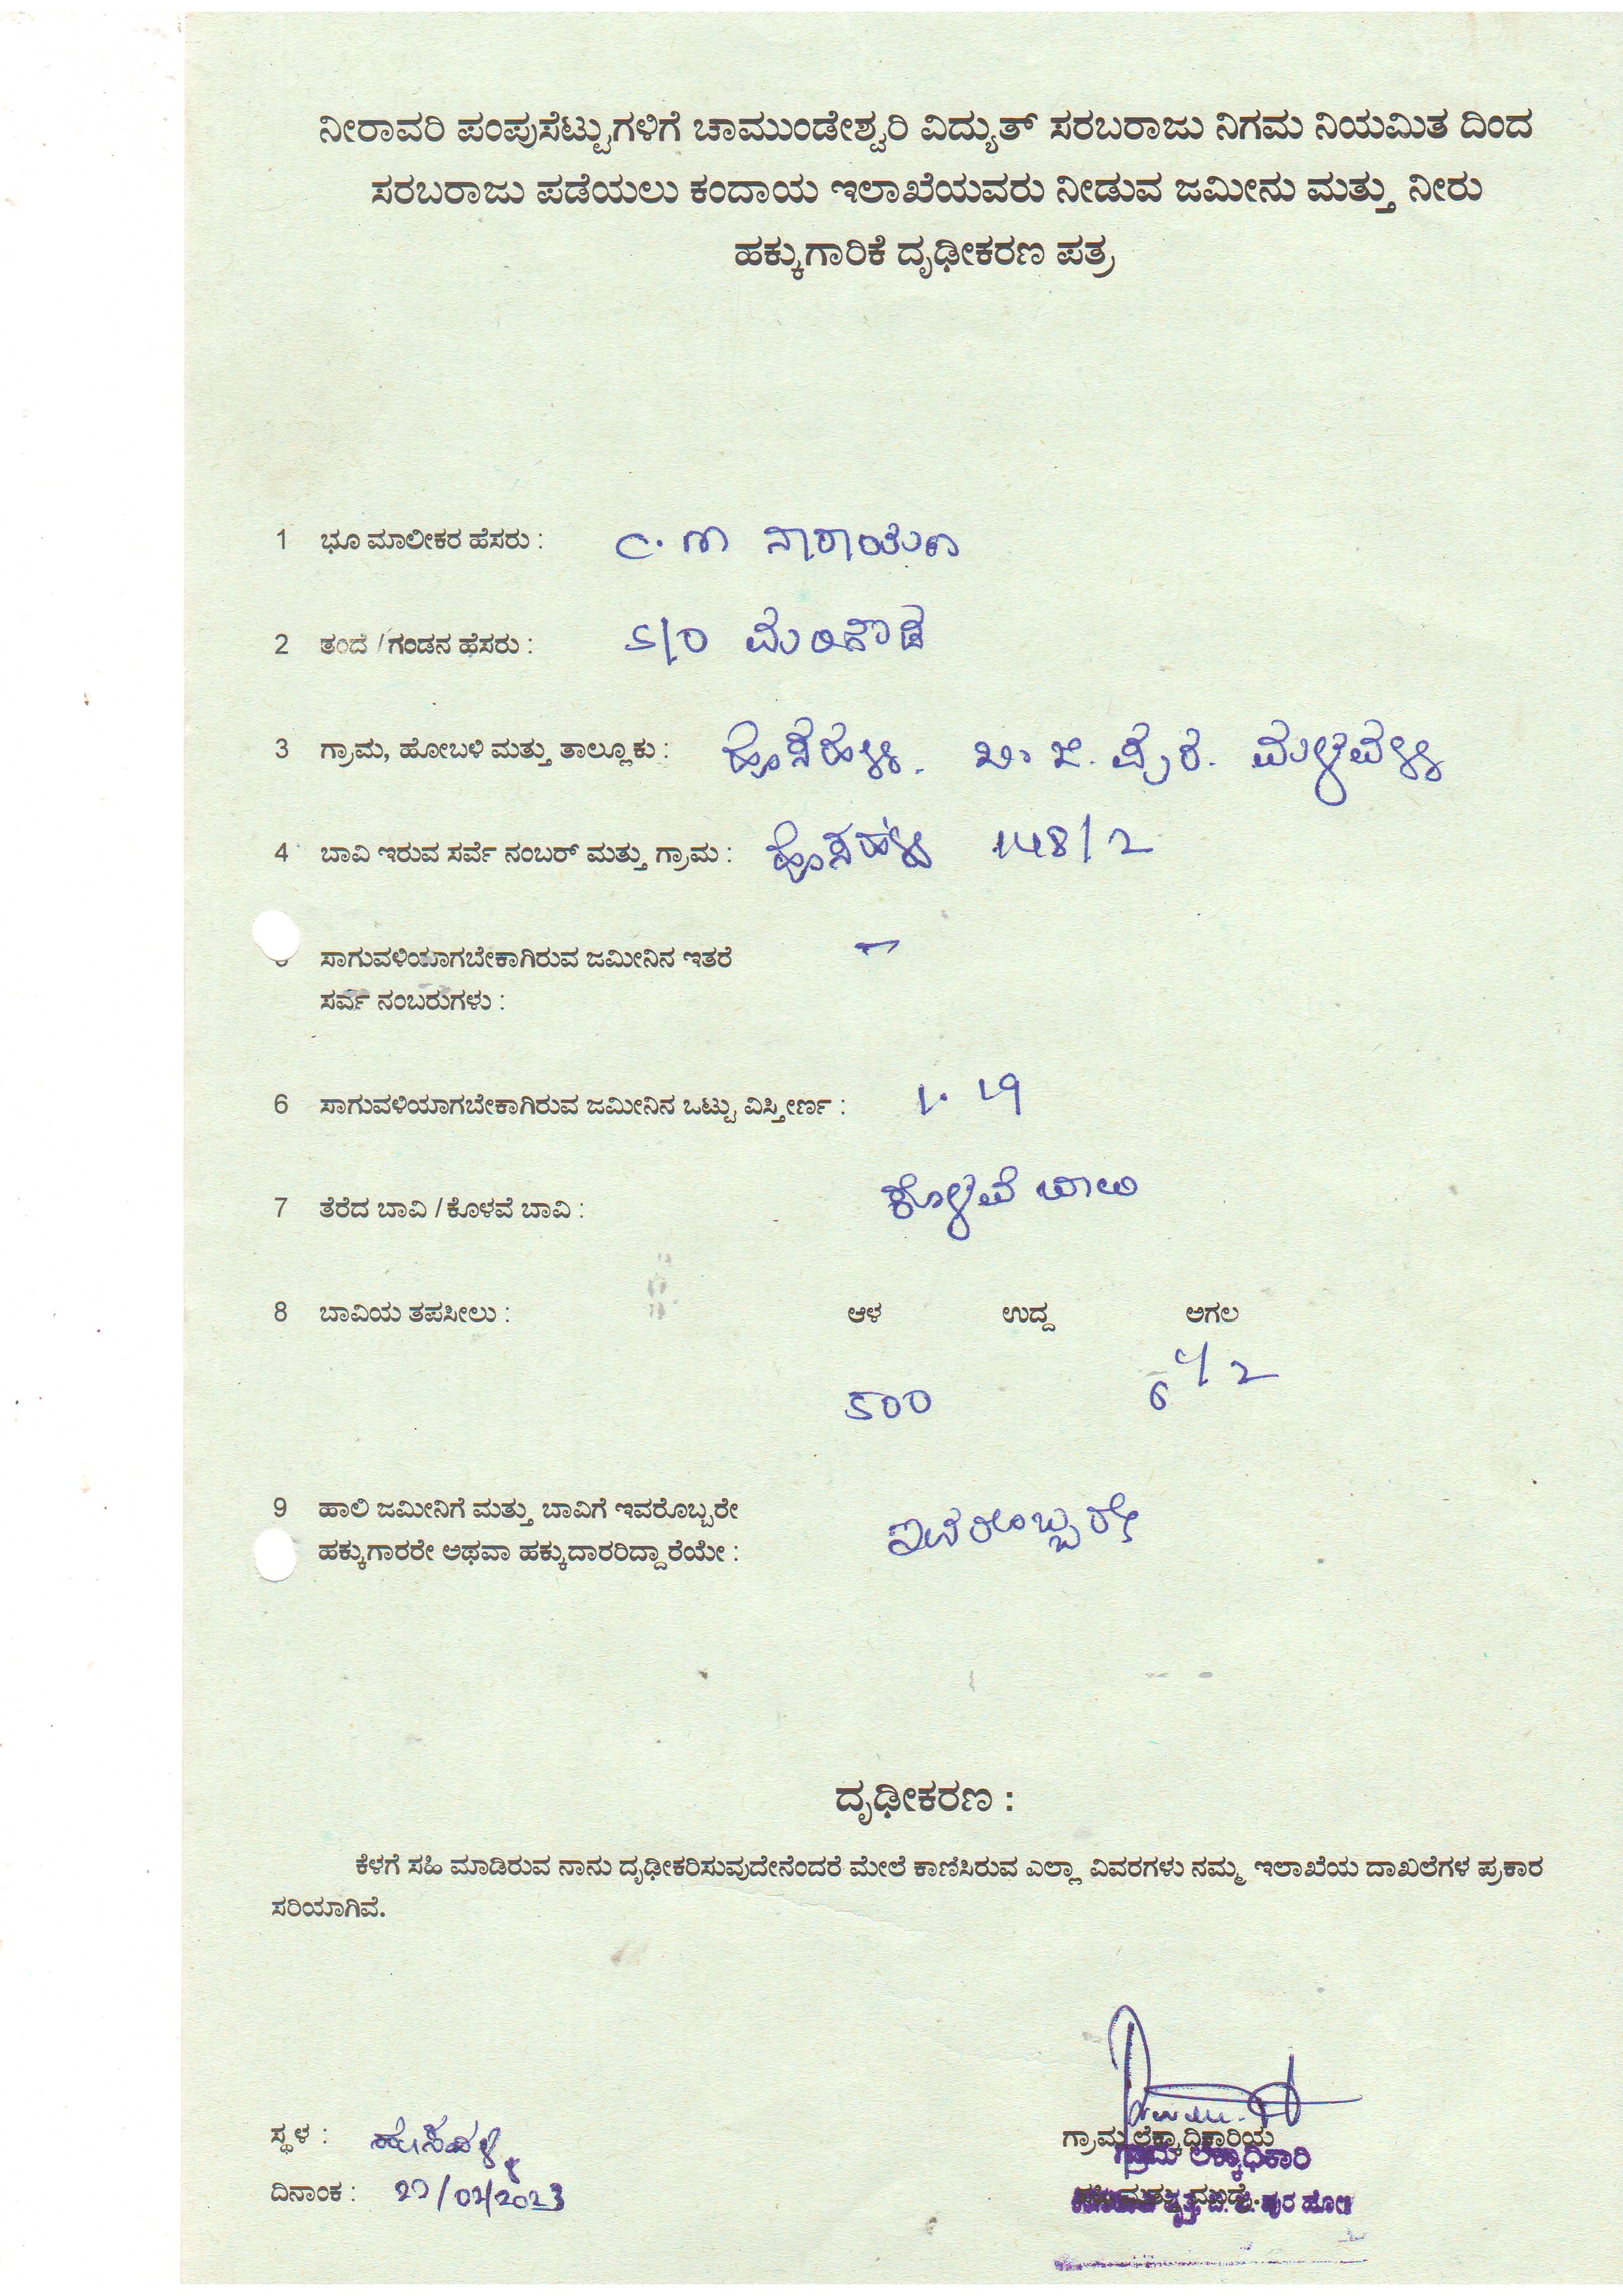 ನೀರಾವರಿ ಪಂಪುಸೆಟ್ಟುಗಳಿಗೆ ಚಾಮುಂಡೇಶ್ವರಿ ವಿದ್ಯುತ್ ಸರಬರಾಜು ನಿಗಮ ನಿಯಮಿತ ದಿಂದ
ಸರಬರಾಜು ಪಡೆಯಲು ಕಂದಾಯ ಇಲಾಖೆಯವರು ನೀಡುವ ಜಮೀನು ಮತ್ತು ನೀರು
ಹಕ್ಕುಗಾರಿಕೆ ದೃಢೀಕರಣ ಪತ್ರ
1 ಭೂ ಮಾಲೀಕರ ಹೆಸರು : ನಾರಾಯಣ
2 ತಂದೆ / ಗಂಡನ ಹೆಸರು : S/O
3 ಗ್ರಾಮ, ಹೋಬಳಿ ಮತ್ತು ತಾಲ್ಲೂಕು : ಹೊಸಹಳ್ಳಿ. ಮಳವಳ್ಳಿ
4 ಬಾವಿ ಇರುವ ಸರ್ವೆ ನಂಬರ್ ಮತ್ತು ಗ್ರಾಮ : ಹೊಸಹಳ್ಳಿ 148/2
ಸಾಗುವಳಿಯಾಗಬೇಕಾಗಿರುವ ಜಮೀನಿನ ಇತರೆ —
ಸರ್ವೆ ನಂಬರುಗಳು :
6 ಸಾಗುವಳಿಯಾಗಬೇಕಾಗಿರುವ ಜಮೀನಿನ ಒಟ್ಟು ವಿಸ್ತೀರ್ಣ : 1.19
7 ತೆರೆದ ಬಾವಿ / ಕೊಳವೆ ಬಾವಿ : ಕೊಳವೆ ಬಾವಿ
8 ಬಾವಿಯ ತಪಸೀಲು : ಆಳ ಉದ್ದ ಅಗಲ
500 6 1/2
9 ಹಾಲಿ ಜಮೀನಿಗೆ ಮತ್ತು ಬಾವಿಗೆ ಇವರೊಬ್ಬರೇ ಇವರೊಬ್ಬರೇ
ಹಕ್ಕುಗಾರರೇ ಅಥವಾ ಹಕ್ಕುದಾರರಿದ್ದಾರೆಯೇ :
ದೃಢೀಕರಣ :
ಕೆಳಗೆ ಸಹಿ ಮಾಡಿರುವ ನಾನು ದೃಢೀಕರಿಸುವುದೇನೆಂದರೆ ಮೇಲೆ ಕಾಣಿಸಿರುವ ಎಲ್ಲಾ ವಿವರಗಳು ನಮ್ಮ ಇಲಾಖೆಯ ದಾಖಲೆಗಳ ಪ್ರಕಾರ
ಸರಿಯಾಗಿವೆ.
ಸ್ಥಳ : ಹೊಸಹಳ್ಳಿ
ಗ್ರಾಮ ಲೆಕ್ಕಾಧಿಕಾರಿಯ
ಗ್ರಾಮ ಲೆಕ್ಕಾಧಿಕಾರಿ
ದಿನಾಂಕ :